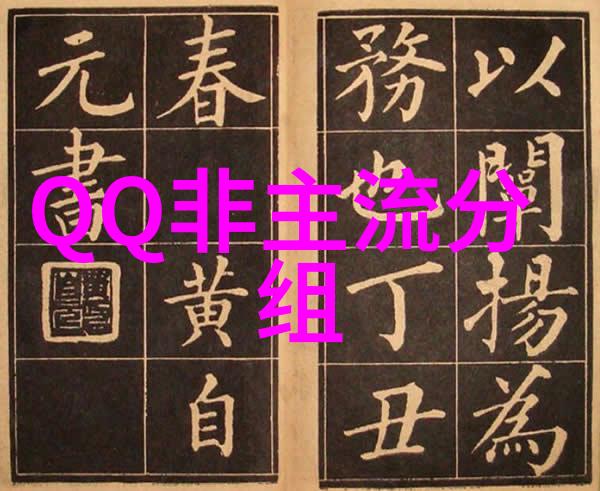 以闡揚為
務也丁丑
春 黄自
元書
QQ非主流分
组